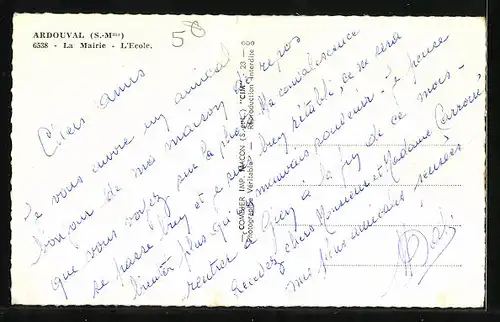 ARDOUVAL (S.-Mme)
6538 - La Mairie - L'Ecole.
58
COMBIER IMP. MACON (S.-et-L.) "CIM"
Photographie Véritable - Reproduction Interdite
Chers amis
Je vous envoie un amical
bonjour de ma maison de repos
que vous voyez sur la photo. La convalescence
se passe bien et je suis bien rétabli, ce ne sera
bientôt plus qu'un mauvais souvenir - Je pense
rentrer à à la fin de ce mois -
Recevez chers Monsieur et Madame Carroué
mes plus amicales pensées